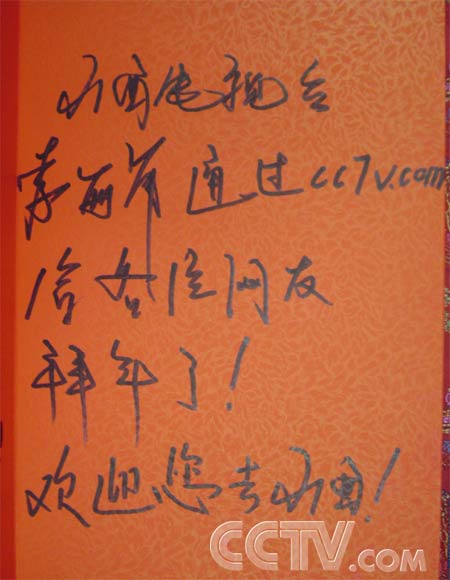 电视台
丽 通过cctv.com
给各位网友
拜年了!
欢迎您去!
CCTV.com